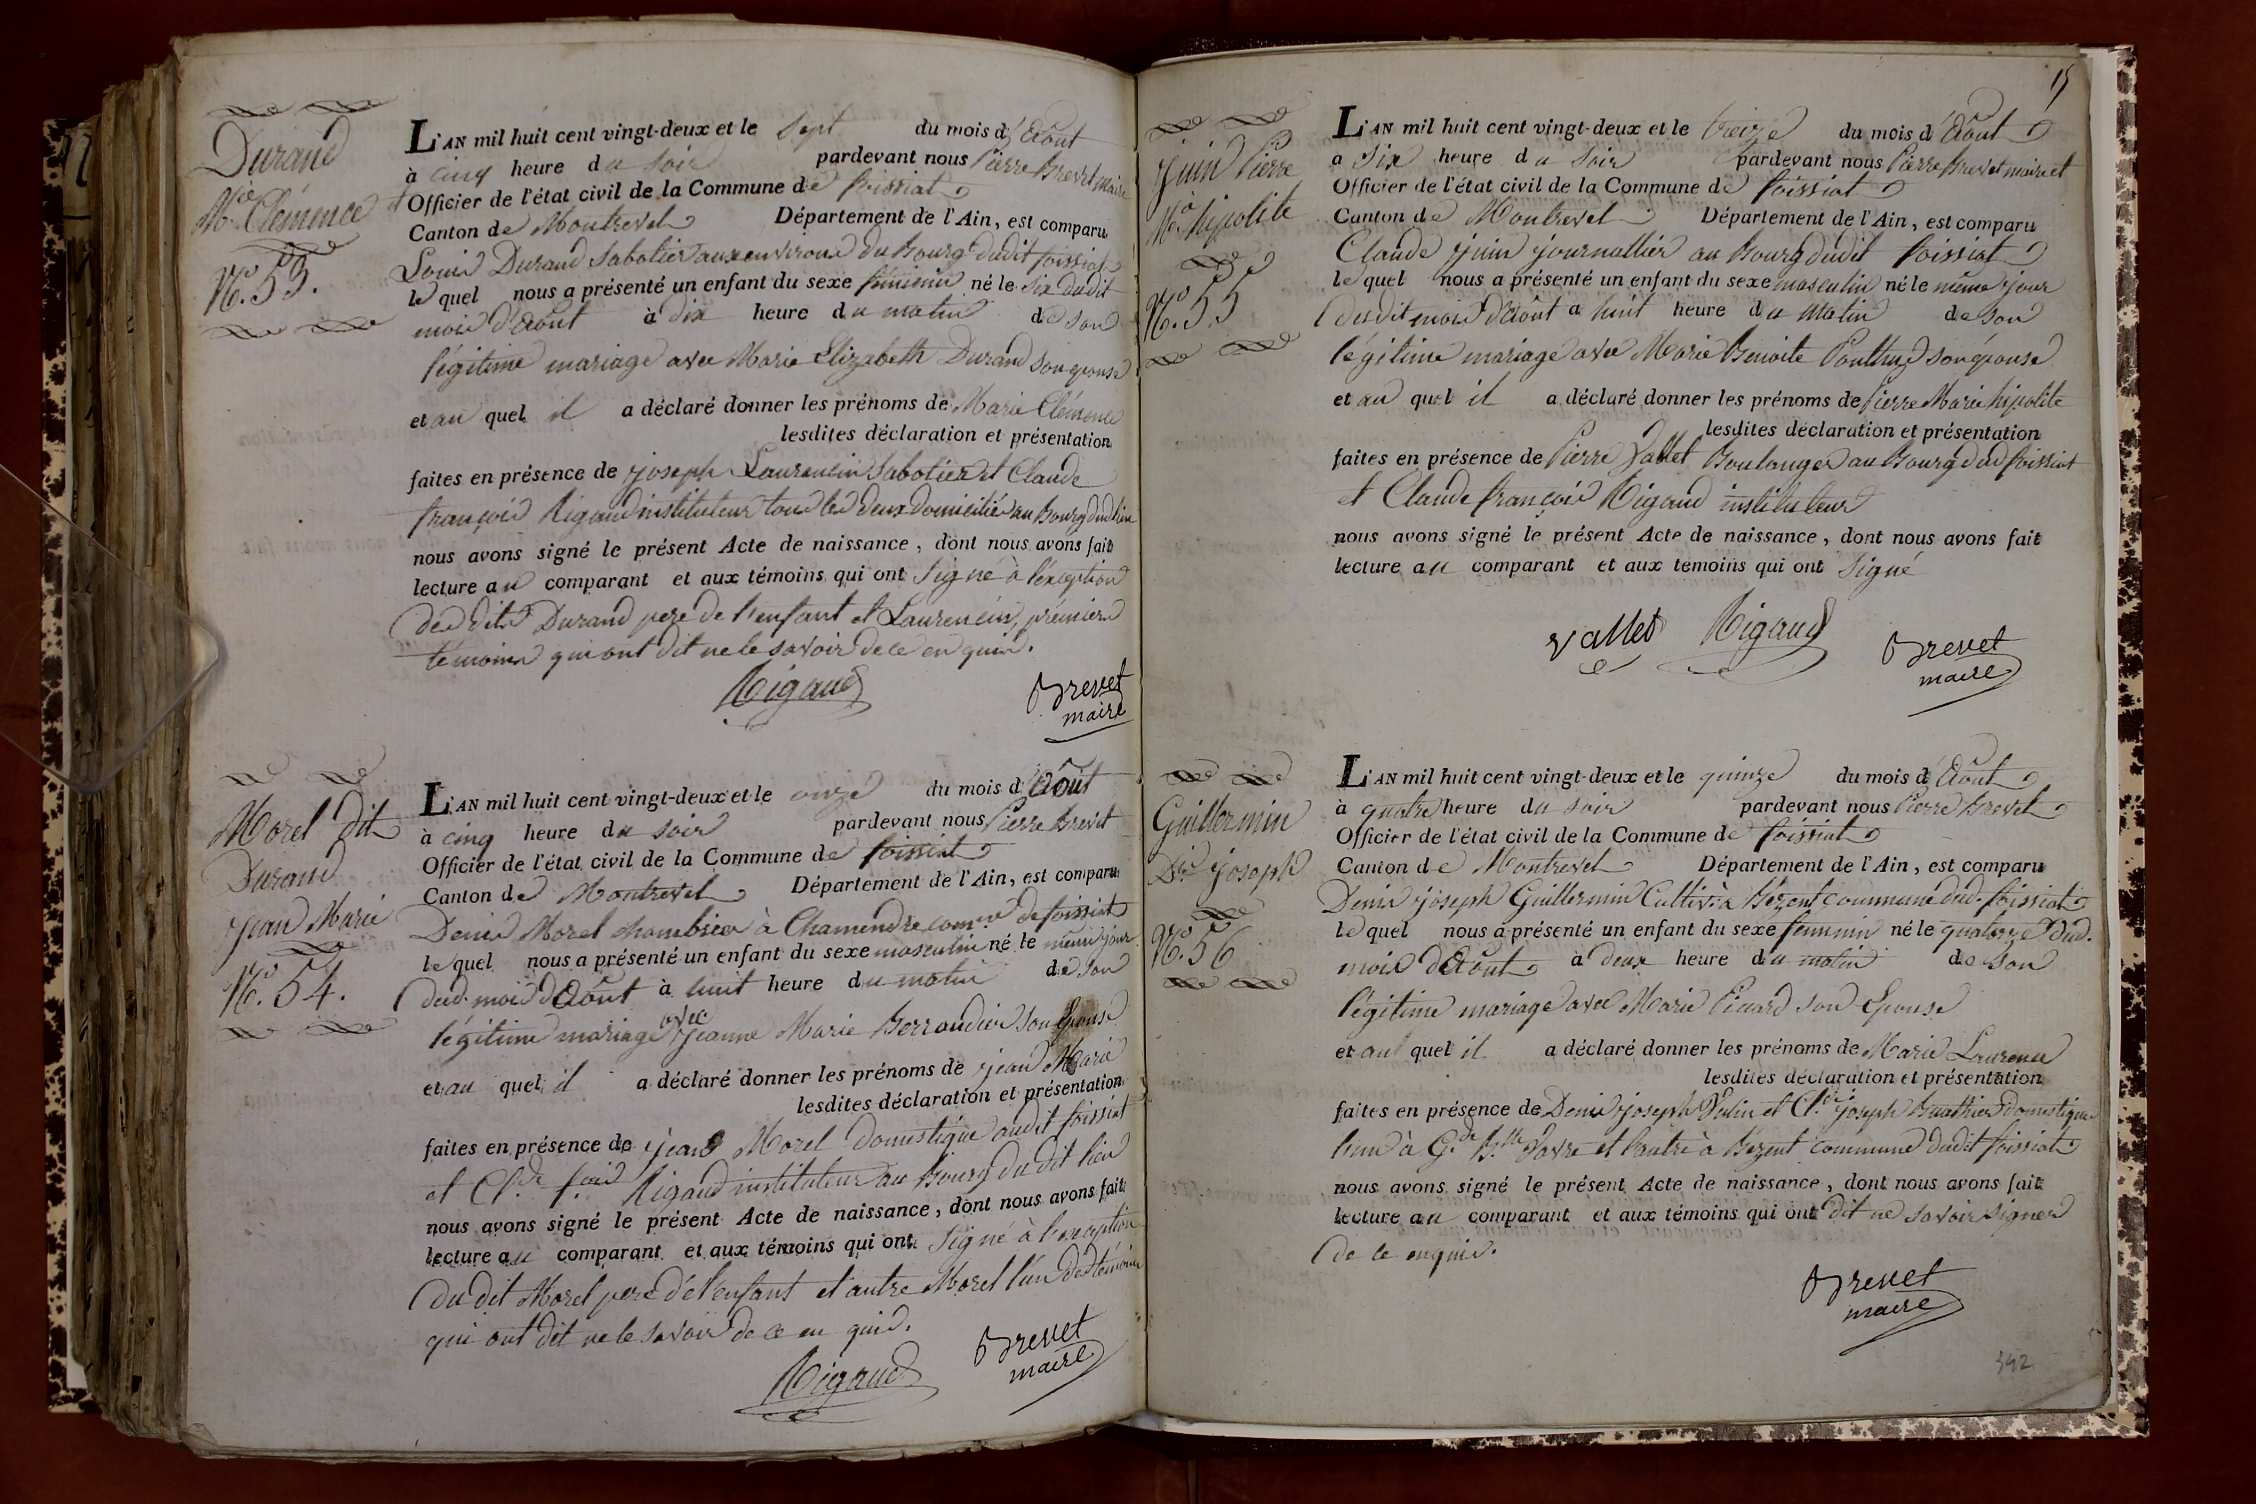 Durand
Mie Clémence
No. 53.
L'AN mil huit cent vingt-deux et le sept du mois d'Août
à cinq heure du soir pardevant nous Pierre Brevet maire
et Officier de l'état civil de la Commune de foissiat
Canton de Montrevel Département de l'Ain, est comparu
Louis Durand Sabotier aux environs du Bourg dudit foissiat
le quel nous a présenté un enfant du sexe féminin né le six dudit
mois d'Août à dix heure du matin de son
légitime mariage avec Marie Elizabeth Durand son épouse
et au quel il a déclaré donner les prénoms de Marie Clémence
lesdites déclaration et présentation
faites en présence de joseph Laurencin Sabotier et Claude
françois Rigaud instituteur tous les deux domiciliés au Bourg dud lieu
nous avons signé le présent Acte de naissance, dont nous avons fait
lecture au comparant et aux témoins qui ont Signé à l'éxception
des dits Durand pere de l'enfant et Laurencin, prémier
témoin qui ont dit ne le savoir de ce en quis.
Rigaud
Brevet
maire
Morel dit
Durand
jean Marie
No. 54.
L'AN mil huit cent vingt-deux et le onze du mois d'Août
à cinq heure du soir pardevant nous Pierre Brevet
Officier de l'état civil de la Commune de foissiat
Canton de Montrevel Département de l'Ain, est comparu
Denis Morel à Chamendre comne de foissiat
le quel nous a présenté un enfant du sexe masculin né le même jour
dud. mois d'Août à huit heure du matin de son
légitime mariage avec jeanne Marie son Epouse
et au quel il a déclaré donner les prénoms de jean Marie
lesdites déclaration et présentation
faites en présence de jean Morel Domestique audit foissiat
et Clde fois Rigaud instituteur au Bourg du dit lieu
nous avons signé le présent Acte de naissance, dont nous avons fait
lecture au comparant et aux témoins qui ont Signé à l'exception
du dit Morel pere de l'enfant et l'autre Morel l'un des témoins
qui ont dit ne le savoir de ce en quis.
Rigaud
Brevet
maire
15
juin Pierre
Ma hipolite
No. 55
L'AN mil huit cent vingt-deux et le treize du mois d'Août
a six heure du soir pardevant nous Pierre Brevet maire et
Officier de l'état civil de la Commune de foissiat
Canton de Montrevel Département de l'Ain, est comparu
Claude juin journallier au Bourg dudit foissiat
le quel nous a présenté un enfant du sexe masculin né le même jour
dudit mois d'Août a huit heure du Matin de son
légitime mariage avec Marie Benoite son épouse
et au quel il a déclaré donner les prénoms de Pierre Marie hipolite
lesdites déclaration et présentation
faites en présence de Pierre Vallet Boulanger au Bourg dud foissiat
et Claude françois Rigaud instituteur
nous avons signé le présent Acte de naissance, dont nous avons fait
lecture au comparant et aux témoins qui ont Signé
Vallet Rigaud
Brevet
maire
Guillermin
Dis joseph
No. 56
L'AN mil huit cent vingt-deux et le quinze du mois d'Août
à quatre heure du soir pardevant nous Pierre Brevet
Officier de l'état civil de la Commune de foissiat
Canton de Montrevel Département de l'Ain, est comparu
Denis joseph Guillermin Cultivr à Bezent commune dud. foissiat
le quel nous a présenté un enfant du sexe feminin né le quatorze dud.
mois d'Août à deux heure du matin de son
légitime mariage avec Marie Picard son Epouse
et au quel il a déclaré donner les prénoms de Marie
lesdites déclaration et présentation
faites en présence de Denis joseph et Cl.de joseph domestiques
l'un à et l'autre à Bezent commune dudit foissiat
nous avons signé le présent Acte de naissance, dont nous avons fait
lecture au comparant et aux témoins qui ont dit ne savoir signer
de ce enquis.
Brevet
maire
392